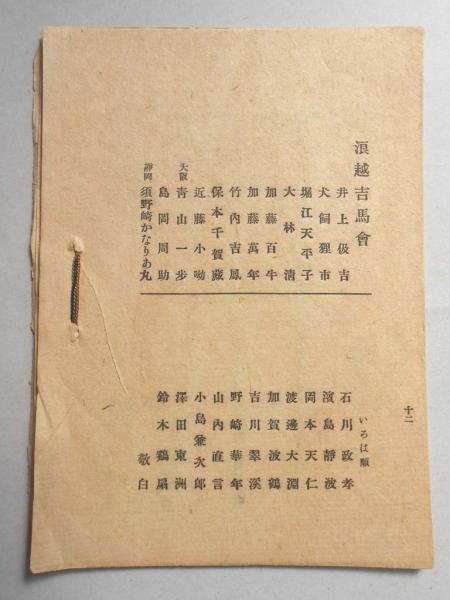 浪越吉馬會
井上伋吉
犬飼狸市
堀江天平子
大林清
加藤百牛
加藤萬年
竹內吉鳳
保本千賀藏
近藤小呦
大阪 靑山一步
島岡周助
靜岡 須野崎かなりあ丸
いろは順
石川政孝
濱島靜波
岡本天仁
渡邊大淵
加賀波鶴
吉川翠溪
野崎華年
山內直言
小島兼次郎
澤田東洲
鈴木鷄扇
敬白
十二